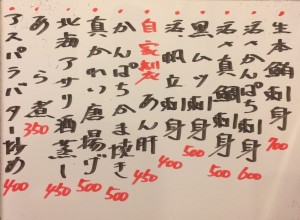 生本鮪刺身 700
活〆かんぱち刺身 600
活〆真鯛刺身 500
黒ムツ刺身 500
活帆立刺身 400
自家製 あん肝 450
かんぱちかま焼き 500
真かれい唐揚げ 500
北海アサリ酒蒸し 450
あら煮 350
アスパラバター炒め 400